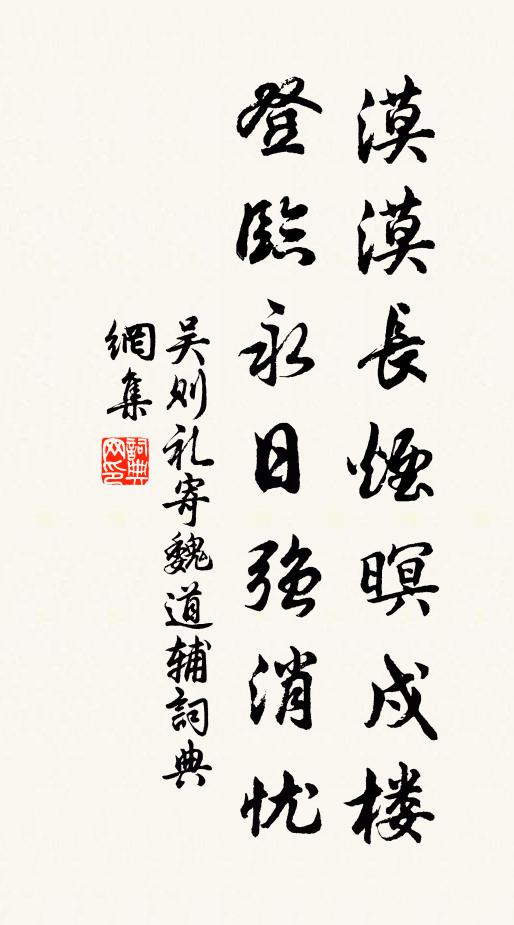 漠漠長煙暝戍楼
登臨永日強消忧
吴则礼寄魏道辅詞典
網集
詞典網印